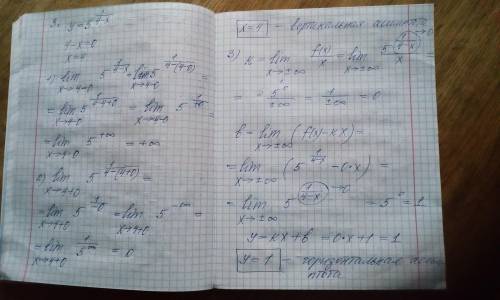 3. y = 5^{1/(4-x)}
4-x=0
x=4
1) lim_{x→4-0} 5^{1/(4-x)} = lim_{x→4-0} 5^{1/(4-(4-0))} =
= lim_{x→4-0} 5^{1/(4-4+0)} = lim_{x→4-0} 5^{1/+0} =
= lim_{x→4-0} 5^{+∞} = +∞
2) lim_{x→4+0} 5^{1/(4-(4+0))} =
= lim_{x→4+0} 5^{1/-0} = lim_{x→4+0} 5^{-∞} =
= lim_{x→4+0} 1/5^{∞} = 0
x=4 - вертикальная асимптота
3) k = lim_{x→±∞} f(x)/x = lim_{x→±∞} 5^{1/(4-x)→0}/x =
= 5^{0}/±∞ = 1/±∞ = 0
b = lim_{x→±∞} (f(x) - kx) =
= lim_{x→±∞} (5^{1/(4-x)} - 0·x) =
= lim_{x→±∞} 5^{1/(4-x)→0} = 5^{0} = 1
y = kx + b = 0·x + 1 = 1
y=1 - горизонтальная асимптота